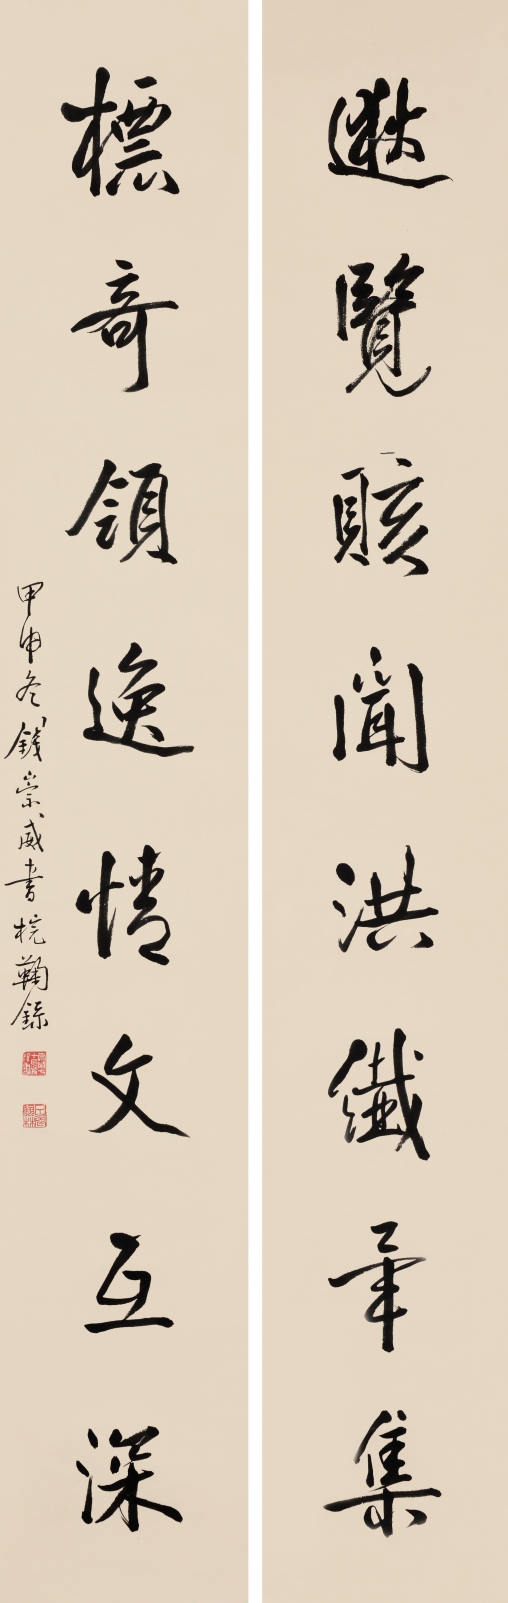 覽賅聞洪纖畢集
標奇領逸情文互深
甲申冬錢崇威書梡鞠錄